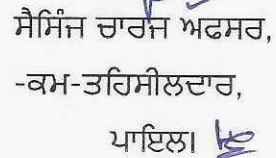 ਸੈਸਿੰਜ ਚਾਰਜ ਅਫਸਰ,
-ਕਮ-ਤਹਿਸੀਲਦਾਰ,
ਪਾਇਲ।